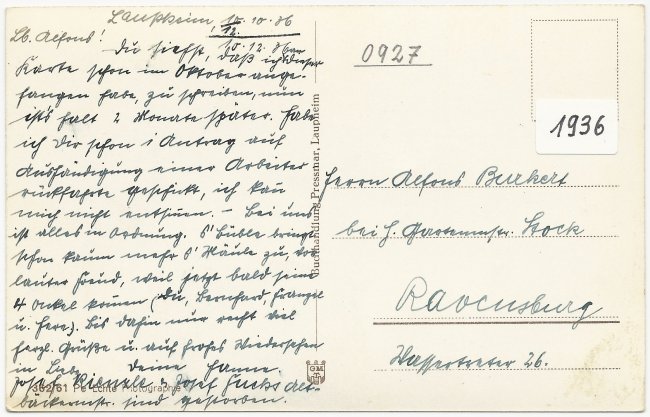 Laupheim, 10.10.36
12.
Lb. Alfons! 10.12.36
Du siehst, daß ich dieser
Karte schon im Oktober ange-
fangen habe, zu schreiben, nun
ist's halt 2 Monate später. Habe
ich Dir schon 1 Antrag auf
Aushändigung einer Arbeiter
rückfahrte geschickt, ich kan
mich nicht entsinnen. – Bei uns
ist alles in Ordnung. S' Büble bringt
schon kaum mehr s' Mäule zu, vor
lauter Freud, weil jetzt bald seine
4 Onkel kommen (Du, Bernhard, Franzel
u. Here.). Bis dahin nur recht viel
herzl. Grüße u. auf frohes Wiedersehen
in Liebe Deine Hanne.
Josef Kienzle & Josef Fuchs Alt-
bäckermstr. sind gestorben.
362/61 Pe Echte Photographie
Buchhandlung Pressmar, Laupheim
0927
1936
Herrn Alfons Burkert
bei H. Gartenmstr. Stock
Ravensburg
Wassertreter 26.